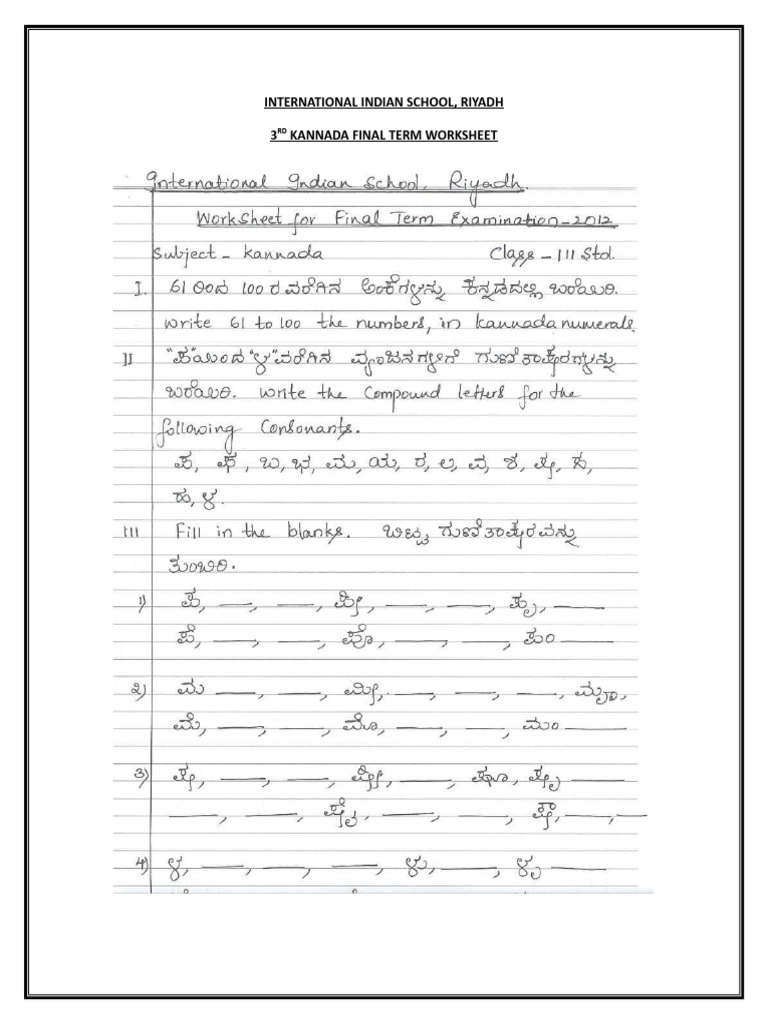 INTERNATIONAL INDIAN SCHOOL, RIYADH
3RD KANNADA FINAL TERM WORKSHEET
International Indian School, Riyadh.
Worksheet for Final Term Examination-2012
Subject - Kannada Class - III Std.
I. 61 ರಿಂದ 100 ರ ವರೆಗಿನ ಅಂಕೆಗಳನ್ನು ಕನ್ನಡದಲ್ಲಿ ಬರೆಯಿರಿ.
write 61 to 100 the numbers, in kannada numerals
II "ಪ"ಯಿಂದ "ಳ"ವರೆಗಿನ ವ್ಯಂಜನಗಳಿಗೆ ಗುಣಿತಾಕ್ಷರಗಳನ್ನು
ಬರೆಯಿರಿ. write the Compound letters for the
following Consonants.
ಪ, ಫ, ಬ, ಭ, ಮ, ಯ, ರ, ಲ, ವ, ಶ, ಷ, ಸ,
ಹ, ಳ.
III Fill in the blanks. ಬಿಟ್ಟ ಗುಣಿತಾಕ್ಷರವನ್ನು
ತುಂಬಿರಿ.
1) ಪ, —, —, ಪೀ, —, —, ಪೃ, —
ಪೆ, —, —, ಪೊ, —, —, ಪಂ —
2) ಮ —, —, ಮೀ, —, —, —, ಮೃಾ,
ಮೆ, —, —, ಮೊ, —, —, ಮಂ —
3) ಷ, —, —, ಷೀ, —, ಷೂ, ಷೃ —
—, —, ಷೈ, —, —, ಷೌ, —, —
4) ಳ, —, —, —, ಳು, —, ಳೃ —